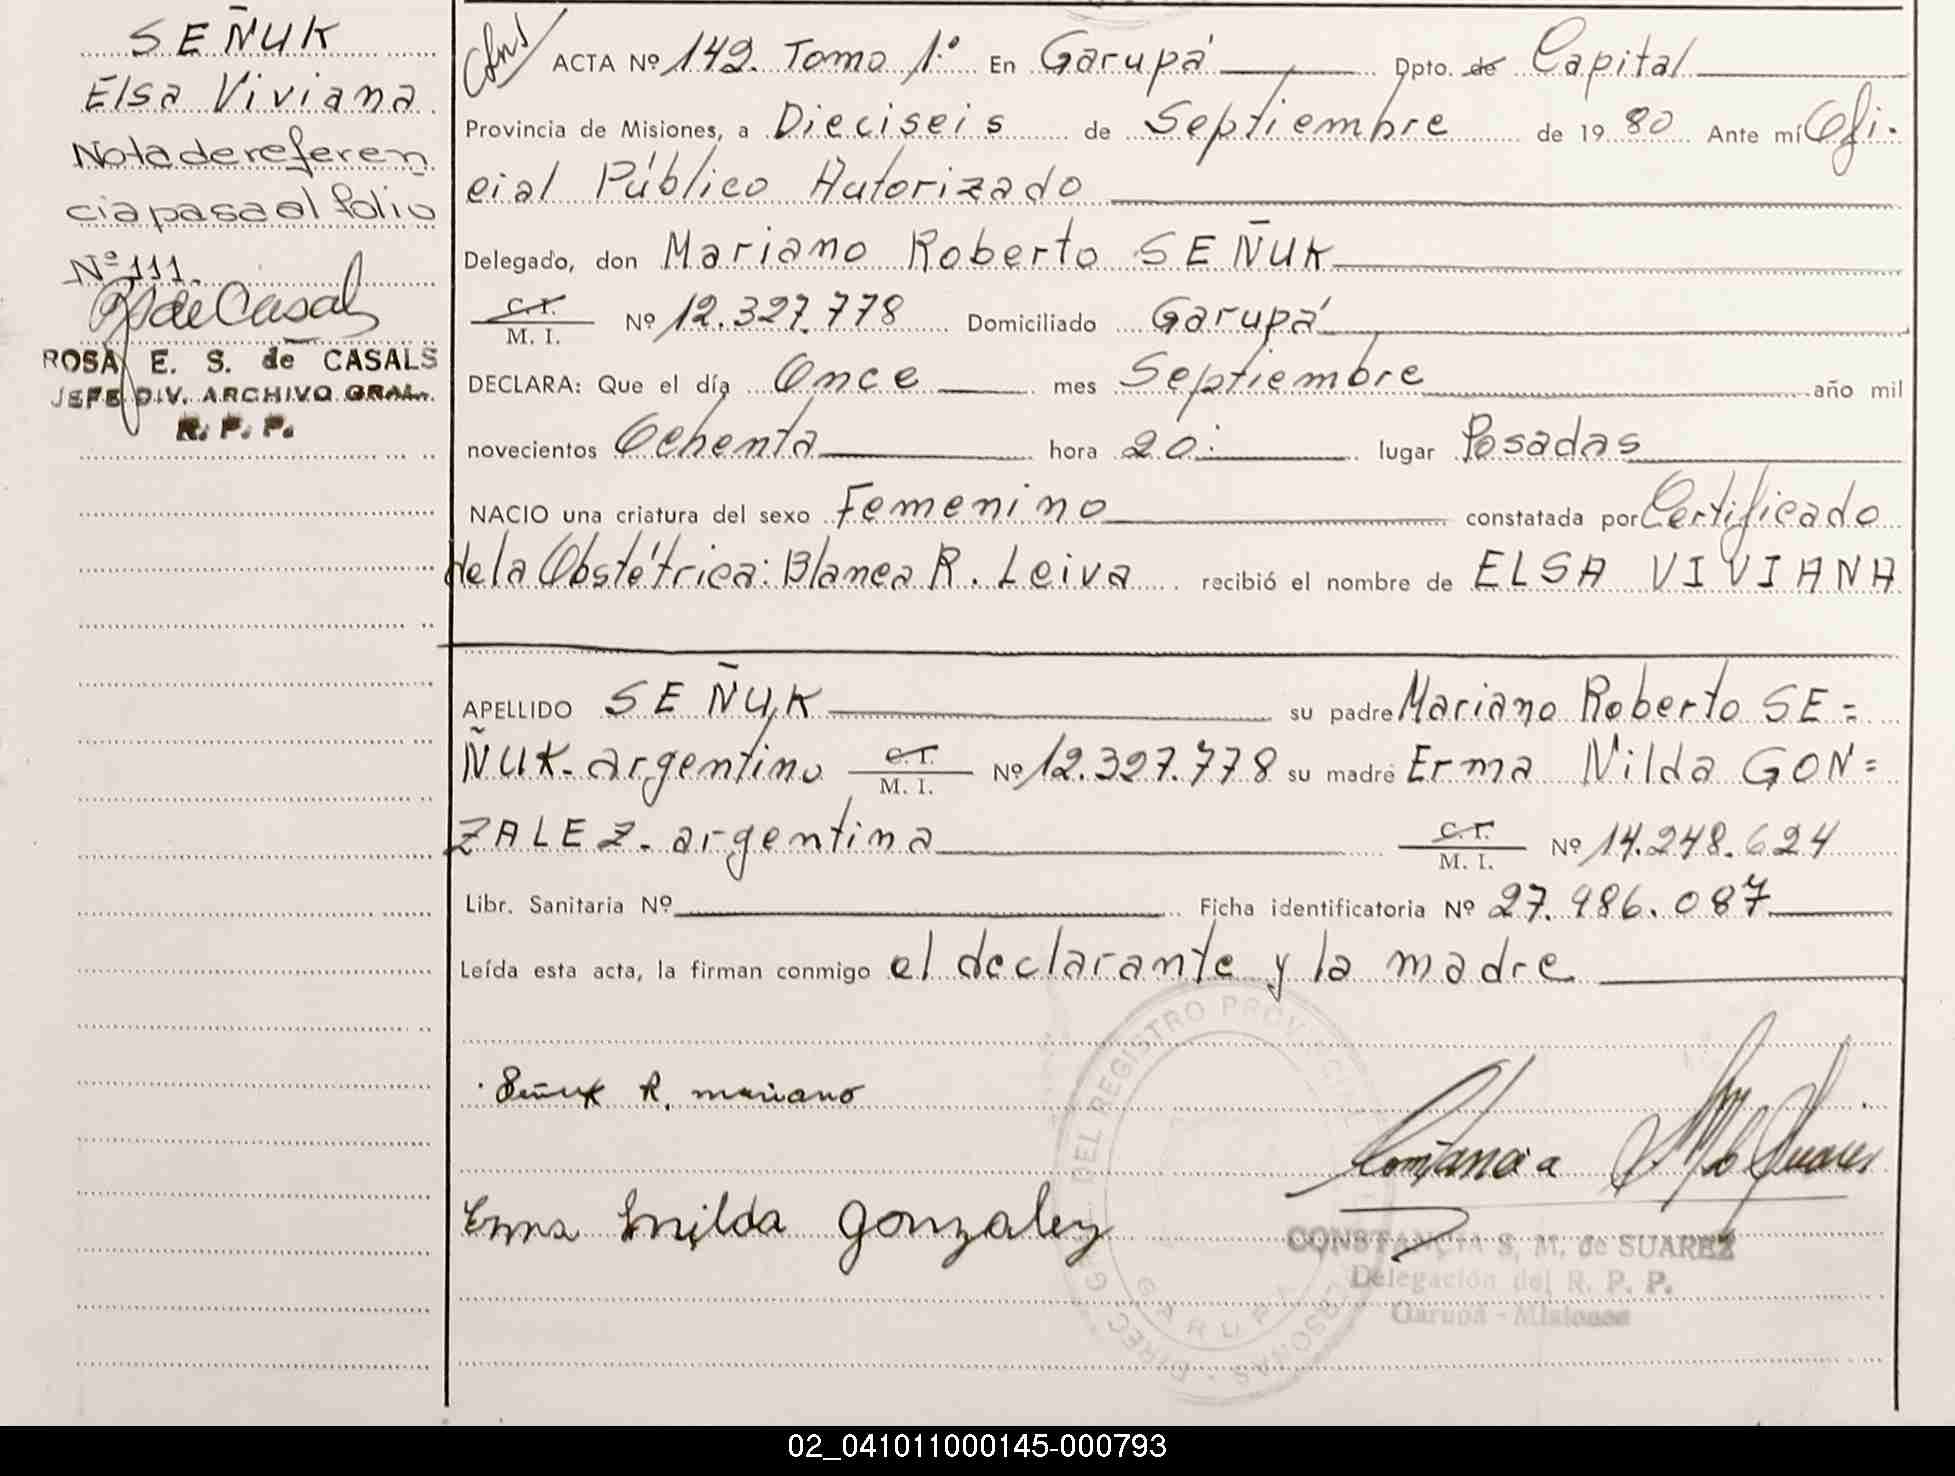 SEÑUK
Elsa Viviana
Nota de referen
cia pasa al folio
Nº 111.
ROSA E. S. de CASALS
JEFE DIV. ARCHIVO GRAL.
R. P. P.
ACTA Nº 142. Tomo 1º En Garupá Dpto. de Capital
Provincia de Misiones, a Dieciseis de Septiembre de 1980 Ante mí Ofi-
cial Público Autorizado
Delegado, don Mariano Roberto SEÑUK
C.I.
M. I. Nº 12.327.778 Domiciliado Garupá
DECLARA: Que el día Once mes Septiembre año mil
novecientos Ochenta hora 20: lugar Posadas
NACIO una criatura del sexo Femenino constatada por Certificado
de la Obstétrica: Blanca R. Leiva recibió el nombre de ELSA VIVIANA
APELLIDO SEÑUK su padre Mariano Roberto SE=
ÑUK- argentino C.I. M. I. Nº 12.327.778 su madre Erma Nilda GON=
ZALEZ- argentina C.I. M. I. Nº 14.248.624
Libr. Sanitaria Nº Ficha identificatoria Nº 27.986.087
Leída esta acta, la firman conmigo el declarante y la madre
Señuk R. mariano
Constancia Suarez
Erma Enilda Gonzalez
CONSTANCIA S. M. de SUAREZ
Delegación del R. P. P.
Garupá - Misiones
DIREC. G DEL REGISTRO PROVINCIAL PERSONAS
GARUPA
02_041011000145-000793